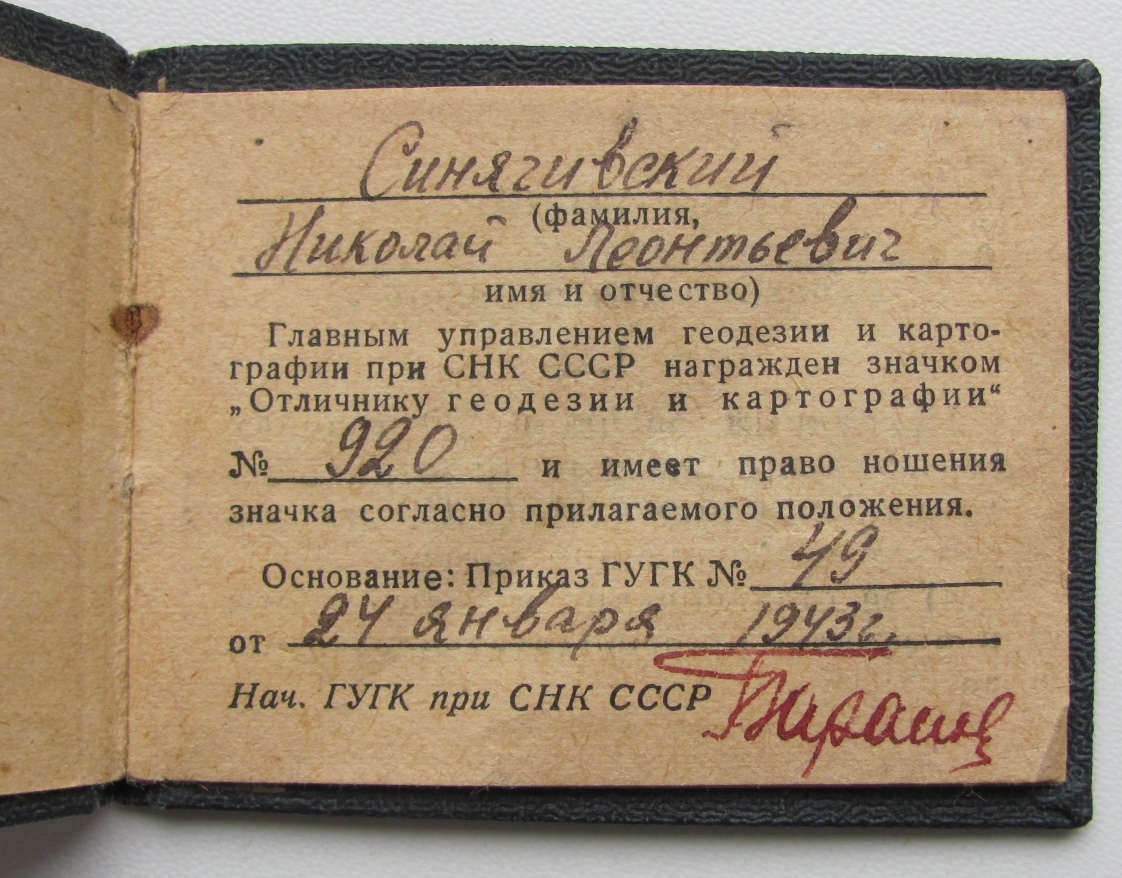 Синягивский
(фамилия,
Николай Леонтьевич
имя и отчество)
Главным управлением геодезии и карто-
графии при СНК СССР награжден значком
„Отличнику геодезии и картографии“
№ 920 и имеет право ношения
значка согласно прилагаемого положения.
Основание: Приказ ГУГК № 49
от 24 января 1943г.
Нач. ГУГК при СНК СССР